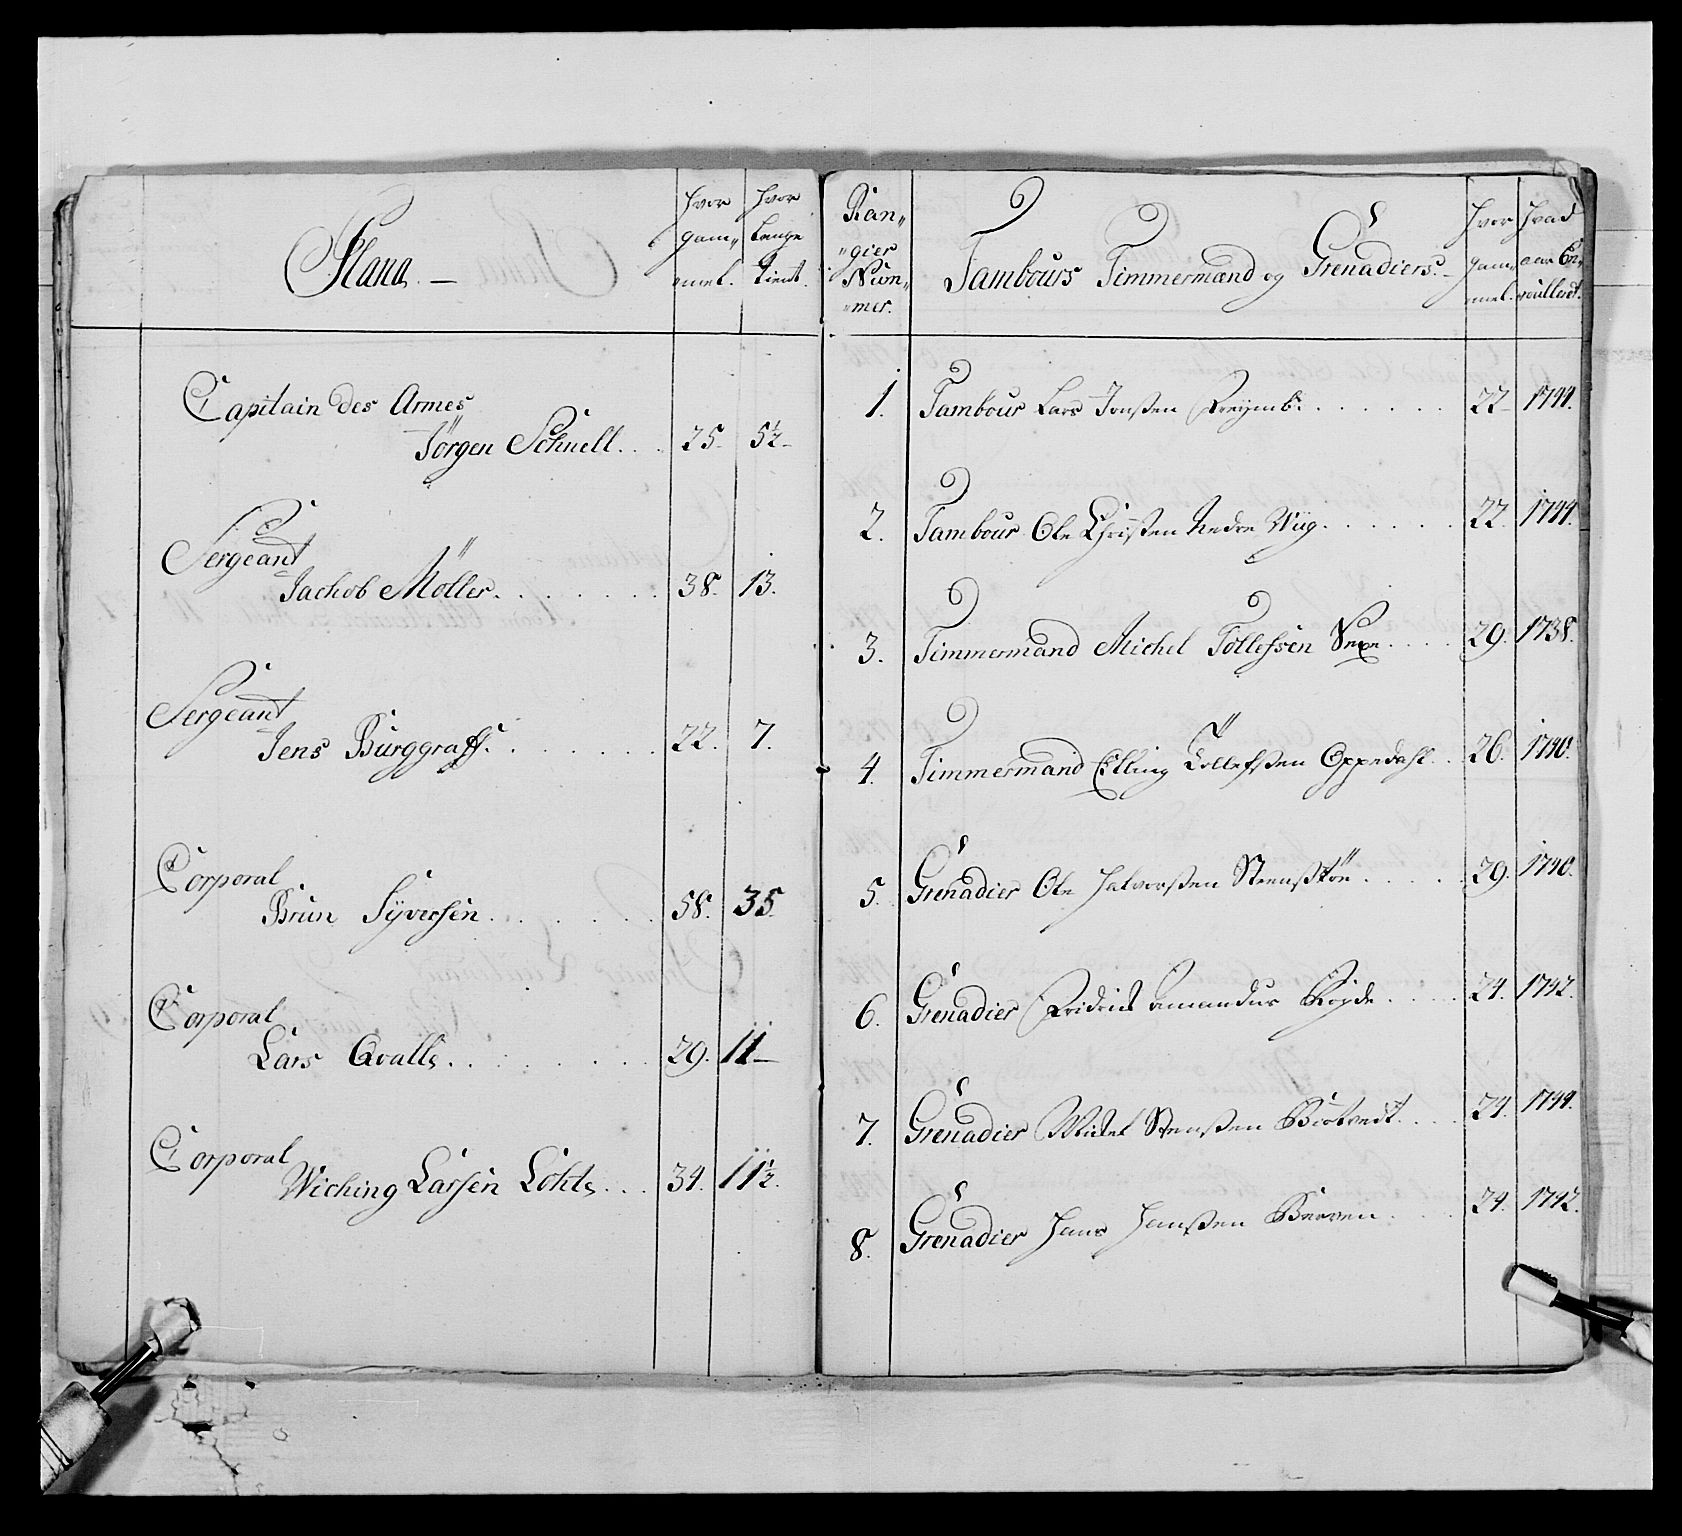 Stana.
hvor gam„ mel.
hvor lenge tient.
Capitain des Armes
Jörgen Schnell. . . 25. 5½
Sergeant
Jachob Möller. . . . . . . . 38. 13.
Sergeant
Jens Burggraff. . . . . . . 22. 7.
Corporal
Brun Syversen. . . . . . . 58. 35.
Corporal
Lars Qvalle. . . . . . . . 29. 11
Corporal
Wiching Larsen Lohte. . . 34. 11½.
Ran„ „gier Num„ „mer.
Tambours Timmermænd og Grenadiers.
hvor gam„ mel.
hvad aar En„ roulleret.
1. Tambour Lars Jonsen . . . . . . 22 1744.
2. Tambour Ole Christen Nedre Wiig. . . . . . 22. 1744.
3. Timmermand Michel Tollefsen . . . . 29. 1738.
4. Timmermand Elling Tollefsen Oppedahl. . 26. 1740.
5. Grenadier Ole Halvorsen . . . . . 29. 1740.
6. Grenadier Fridrich Amandus . . . . 24. 1742.
7. Grenadier Michel Stensen . . . . 24. 1744.
8. Grenadier Hans Hansen Berven . . . . 24. 1742.